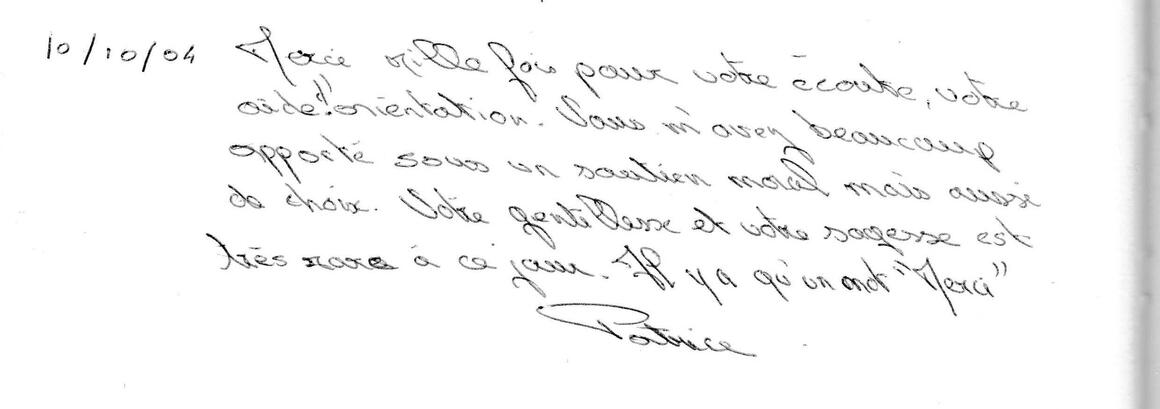 10/10/04 Mercie mille fois pour votre écoute, votre
aide! orientation. Vous m'avez beaucoup
apporté sous un soutien moral mais aussi
de choix. Votre gentillesse et votre sagesse est
très rare à ce jour. Il y a qu'un mot "Merci"
Patrice